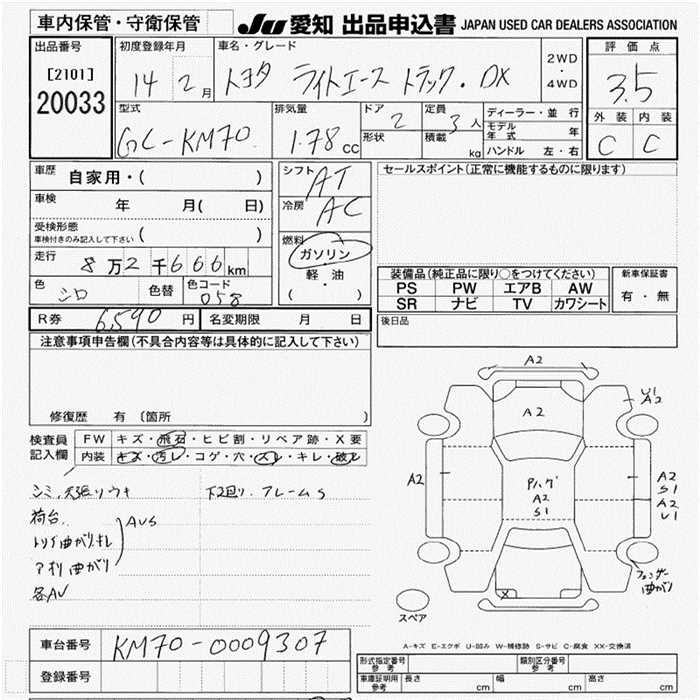 車内保管・守衛保管
JU 愛知 出品申込書 JAPAN USED CAR DEALERS ASSOCIATION
出品番号
[2101]
20033
初度登録年月
14 2月
車名・グレード
トヨタ ライトエース トラック・DX
2WD
・
4WD
評価点
3.5
外装 内装
C C
型式
GC-KM70
排気量
1.78cc
ドア 2
形状
定員 3人
積載 kg
ディーラー・並行
モデル年式 年
ハンドル 左・右
車歴 自家用・( )
車検 年 月( 日)
受検形態
車検付きのみ記入して下さい ( )
走行 8万2千666km
色 シロ 色替 色コード 058
シフト AT
冷房 AC
燃料
ガソリン
軽・油
( ・ )
セールスポイント(正常に機能するものに限ります)
装備品(純正品に限り○をつけてください)
PS PW エアB AW
SR ナビ TV カワシート
新車保証書
有・無
後日品
R券 6,590円 名変期限 月 日
注意事項申告欄(不具合内容等は具体的に記入して下さい)
修復歴 有 〔箇所
検査員記入欄
FW キズ・飛石・ヒビ割・リペア跡・X要
内装 キズ・汚レ・コゲ・穴・スレ・キレ・破レ
シミ、天張リウキ 下2回り、フレームS
荷台、
トリイ曲がり、キレ AUS
アオリ曲がり
各AU
A2
A2
U1
A2
A2
Pハゲ
A2
S1
A2
S1
A2
U1
X
フェンダー
曲がり
スペア
A-キズ E-エクボ U-凹み W-補修跡 S-サビ C-腐食 XX-交換済
車台番号 KM70-0009307
登録番号
型式指定番号 参考
類別区分番号 参考
車庫証明用 参考 長さ cm 幅 cm 高さ cm